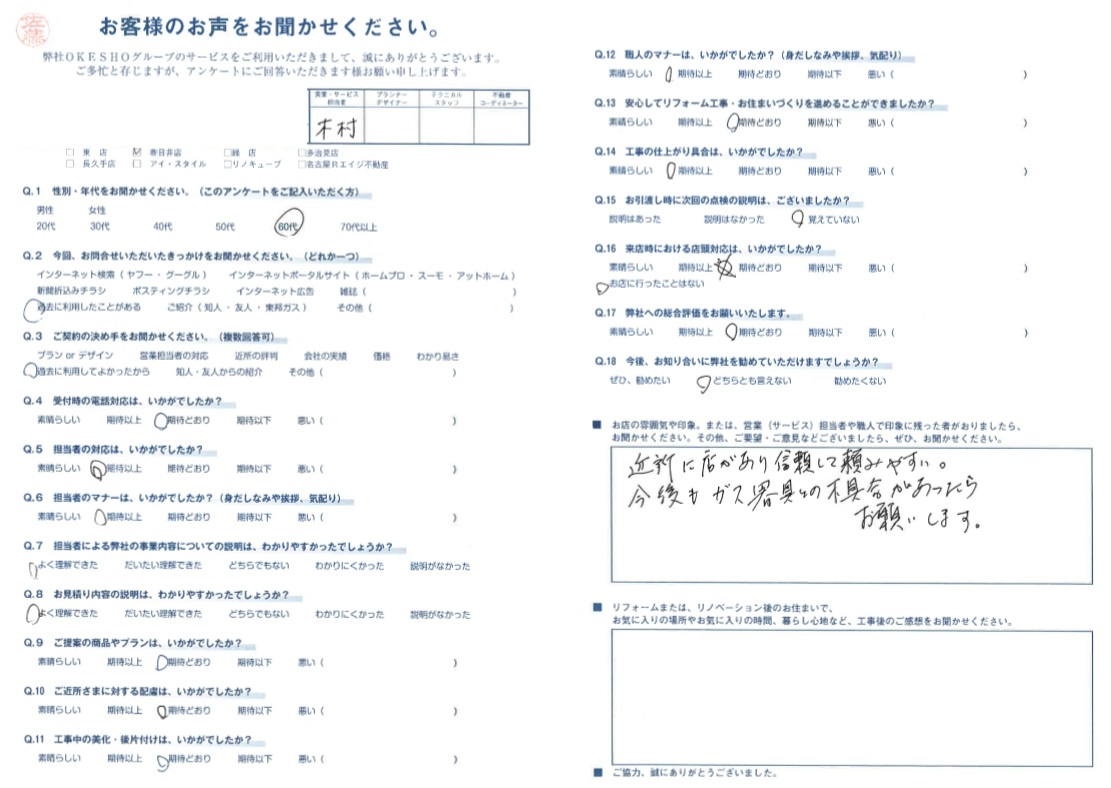 佐藤
お客様のお声をお聞かせください。
弊社OKESHOグループのサービスをご利用いただきまして、誠にありがとうございます。
ご多忙と存じますが、アンケートにご回答いただきます様お願い申し上げます。
営業・サービス担当者 プランナーデザイナー テクニカルスタッフ 不動産コーディネーター
木村
□ 東店 ☑ 春日井店 □緑店 □多治見店
□ 長久手店 □ アイ・スタイル □リノキューブ □名古屋Rエイジ不動産
Q.1 性別・年代をお聞かせください。（このアンケートをご記入いただく方）
男性 女性
20代 30代 40代 50代 60代 70代以上
Q.2 今回、お問合せいただいたきっかけをお聞かせください。（どれか一つ）
インターネット検索（ ヤフー ・ グーグル ） インターネットポータルサイト（ ホームプロ ・ スーモ ・ アットホーム ）
新聞折込みチラシ ポスティングチラシ インターネット広告 雑誌（ ）
過去に利用したことがある ご紹介（ 知人 ・ 友人 ・ 東邦ガス ） その他（ ）
Q.3 ご契約の決め手をお聞かせください。（複数回答可）
プラン or デザイン 営業担当者の対応 近所の評判 会社の実績 価格 わかり易さ
過去に利用してよかったから 知人・友人からの紹介 その他（ ）
Q.4 受付時の電話対応は、いかがでしたか？
素晴らしい 期待以上 期待どおり 期待以下 悪い（ ）
Q.5 担当者の対応は、いかがでしたか？
素晴らしい 期待以上 期待どおり 期待以下 悪い（ ）
Q.6 担当者のマナーは、いかがでしたか？（身だしなみや挨拶、気配り）
素晴らしい 期待以上 期待どおり 期待以下 悪い（ ）
Q.7 担当者による弊社の事業内容についての説明は、わかりやすかったでしょうか？
よく理解できた だいたい理解できた どちらでもない わかりにくかった 説明がなかった
Q.8 お見積り内容の説明は、わかりやすかったでしょうか？
よく理解できた だいたい理解できた どちらでもない わかりにくかった 説明がなかった
Q.9 ご提案の商品やプランは、いかがでしたか？
素晴らしい 期待以上 期待どおり 期待以下 悪い（ ）
Q.10 ご近所さまに対する配慮は、いかがでしたか？
素晴らしい 期待以上 期待どおり 期待以下 悪い（ ）
Q.11 工事中の美化・後片付けは、いかがでしたか？
素晴らしい 期待以上 期待どおり 期待以下 悪い（ ）
Q.12 職人のマナーは、いかがでしたか？（身だしなみや挨拶、気配り）
素晴らしい 期待以上 期待どおり 期待以下 悪い（ ）
Q.13 安心してリフォーム工事・お住まいづくりを進めることができましたか？
素晴らしい 期待以上 期待どおり 期待以下 悪い（ ）
Q.14 工事の仕上がり具合は、いかがでしたか？
素晴らしい 期待以上 期待どおり 期待以下 悪い（ ）
Q.15 お引渡し時に次回の点検の説明は、ございましたか？
説明はあった 説明はなかった 覚えていない
Q.16 来店時における店頭対応は、いかがでしたか？
素晴らしい 期待以上 期待どおり 期待以下 悪い（ ）
お店に行ったことはない
Q.17 弊社への総合評価をお願いいたします。
素晴らしい 期待以上 期待どおり 期待以下 悪い（ ）
Q.18 今後、お知り合いに弊社を勧めていただけますでしょうか？
ぜひ、勧めたい どちらとも言えない 勧めたくない
■ お店の雰囲気や印象。または、営業（サービス）担当者や職人で印象に残った者がおりましたら、
お聞かせください。その他、ご要望・ご意見などございましたら、ぜひ、お聞かせください。
近所に店があり信頼して頼みやすい。
今後もガス器具との不具合があったら
お願いします。
■ リフォームまたは、リノベーション後のお住まいで、
お気に入りの場所やお気に入りの時間、暮らし心地など、工事後のご感想をお聞かせください。
■ ご協力、誠にありがとうございました。